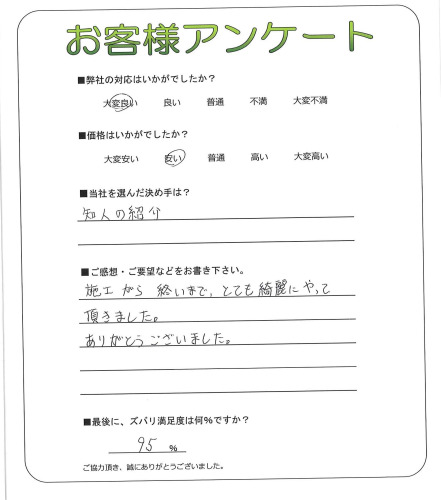 お客様アンケート
■弊社の対応はいかがでしたか?
大変良い 良い 普通 不満 大変不満
■価格はいかがでしたか?
大変安い 安い 普通 高い 大変高い
■当社を選んだ決め手は?
知人の紹介
■ご感想・ご要望などをお書き下さい。
施工から 終いまで、とても綺麗にやって
頂きました。
ありがとうございました。
■最後に、ズバリ満足度は何%ですか?
95 %
ご協力頂き、誠にありがとうございました。